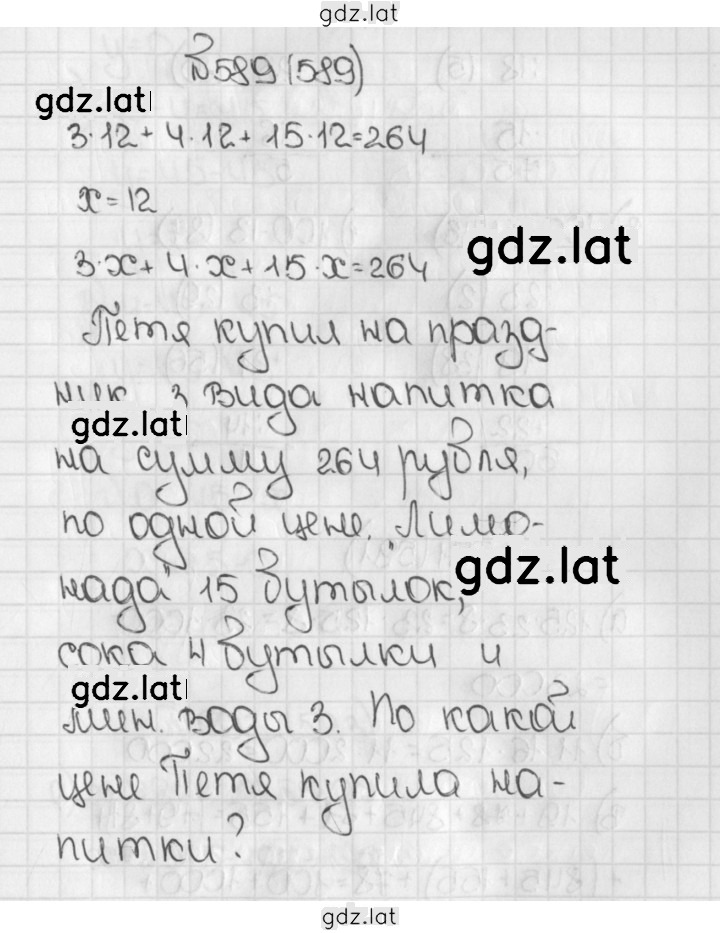 gdz.lat
№589 (589)
gdz.lat
3·12+4·12+15·12=264
x=12
gdz.lat
3·x+4·x+15·x=264
Петя купил на празд-
ник 3 вида напитка
gdz.lat
на сумму 264 рубля,
по одной цене. Лимо-
gdz.lat
нада 15 бутылок,
сока 4 бутылки и
gdz.lat
мин. воды 3. По какой
цене Петя купила на-
питки?
gdz.lat